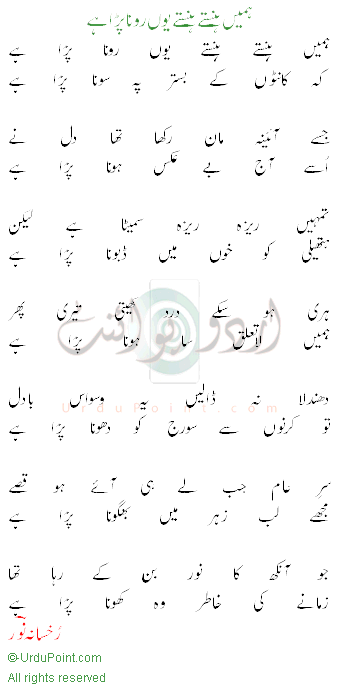 ہمیں ہنستے ہنستے یوں رونا پڑا ہے
ہمیں ہنستے ہنستے یوں رونا پڑا ہے
کہ کانٹوں کے بستر پہ سونا پڑا ہے
جسے آئینہ مان رکھا تھا دل نے
اُسے آج بے عکس ہونا پڑا ہے
تمہیں ریزہ ریزہ سمیٹا ہے لیکن
ہتھیلی کو خوں میں ڈبونا پڑا ہے
ہری ہو سکے درد کھیتی تیری پھر
ہمیں لاتعلق سا ہونا پڑا ہے
اردو پوائنٹ
دھندلا نہ ڈالیں یہ وسواس بادل
UrduPoint.com
تو کرنوں سے سورج کو دھونا پڑا ہے
سر عام جب لے ہی آئے ہو قصے
مجھے لب زہر میں بھگونا پڑا ہے
جو آنکھ کا نور بن کے رہا تھا
زمانے کی خاطر وہ کھونا پڑا ہے
رُخسانہ نور
© UrduPoint.com
All rights reserved